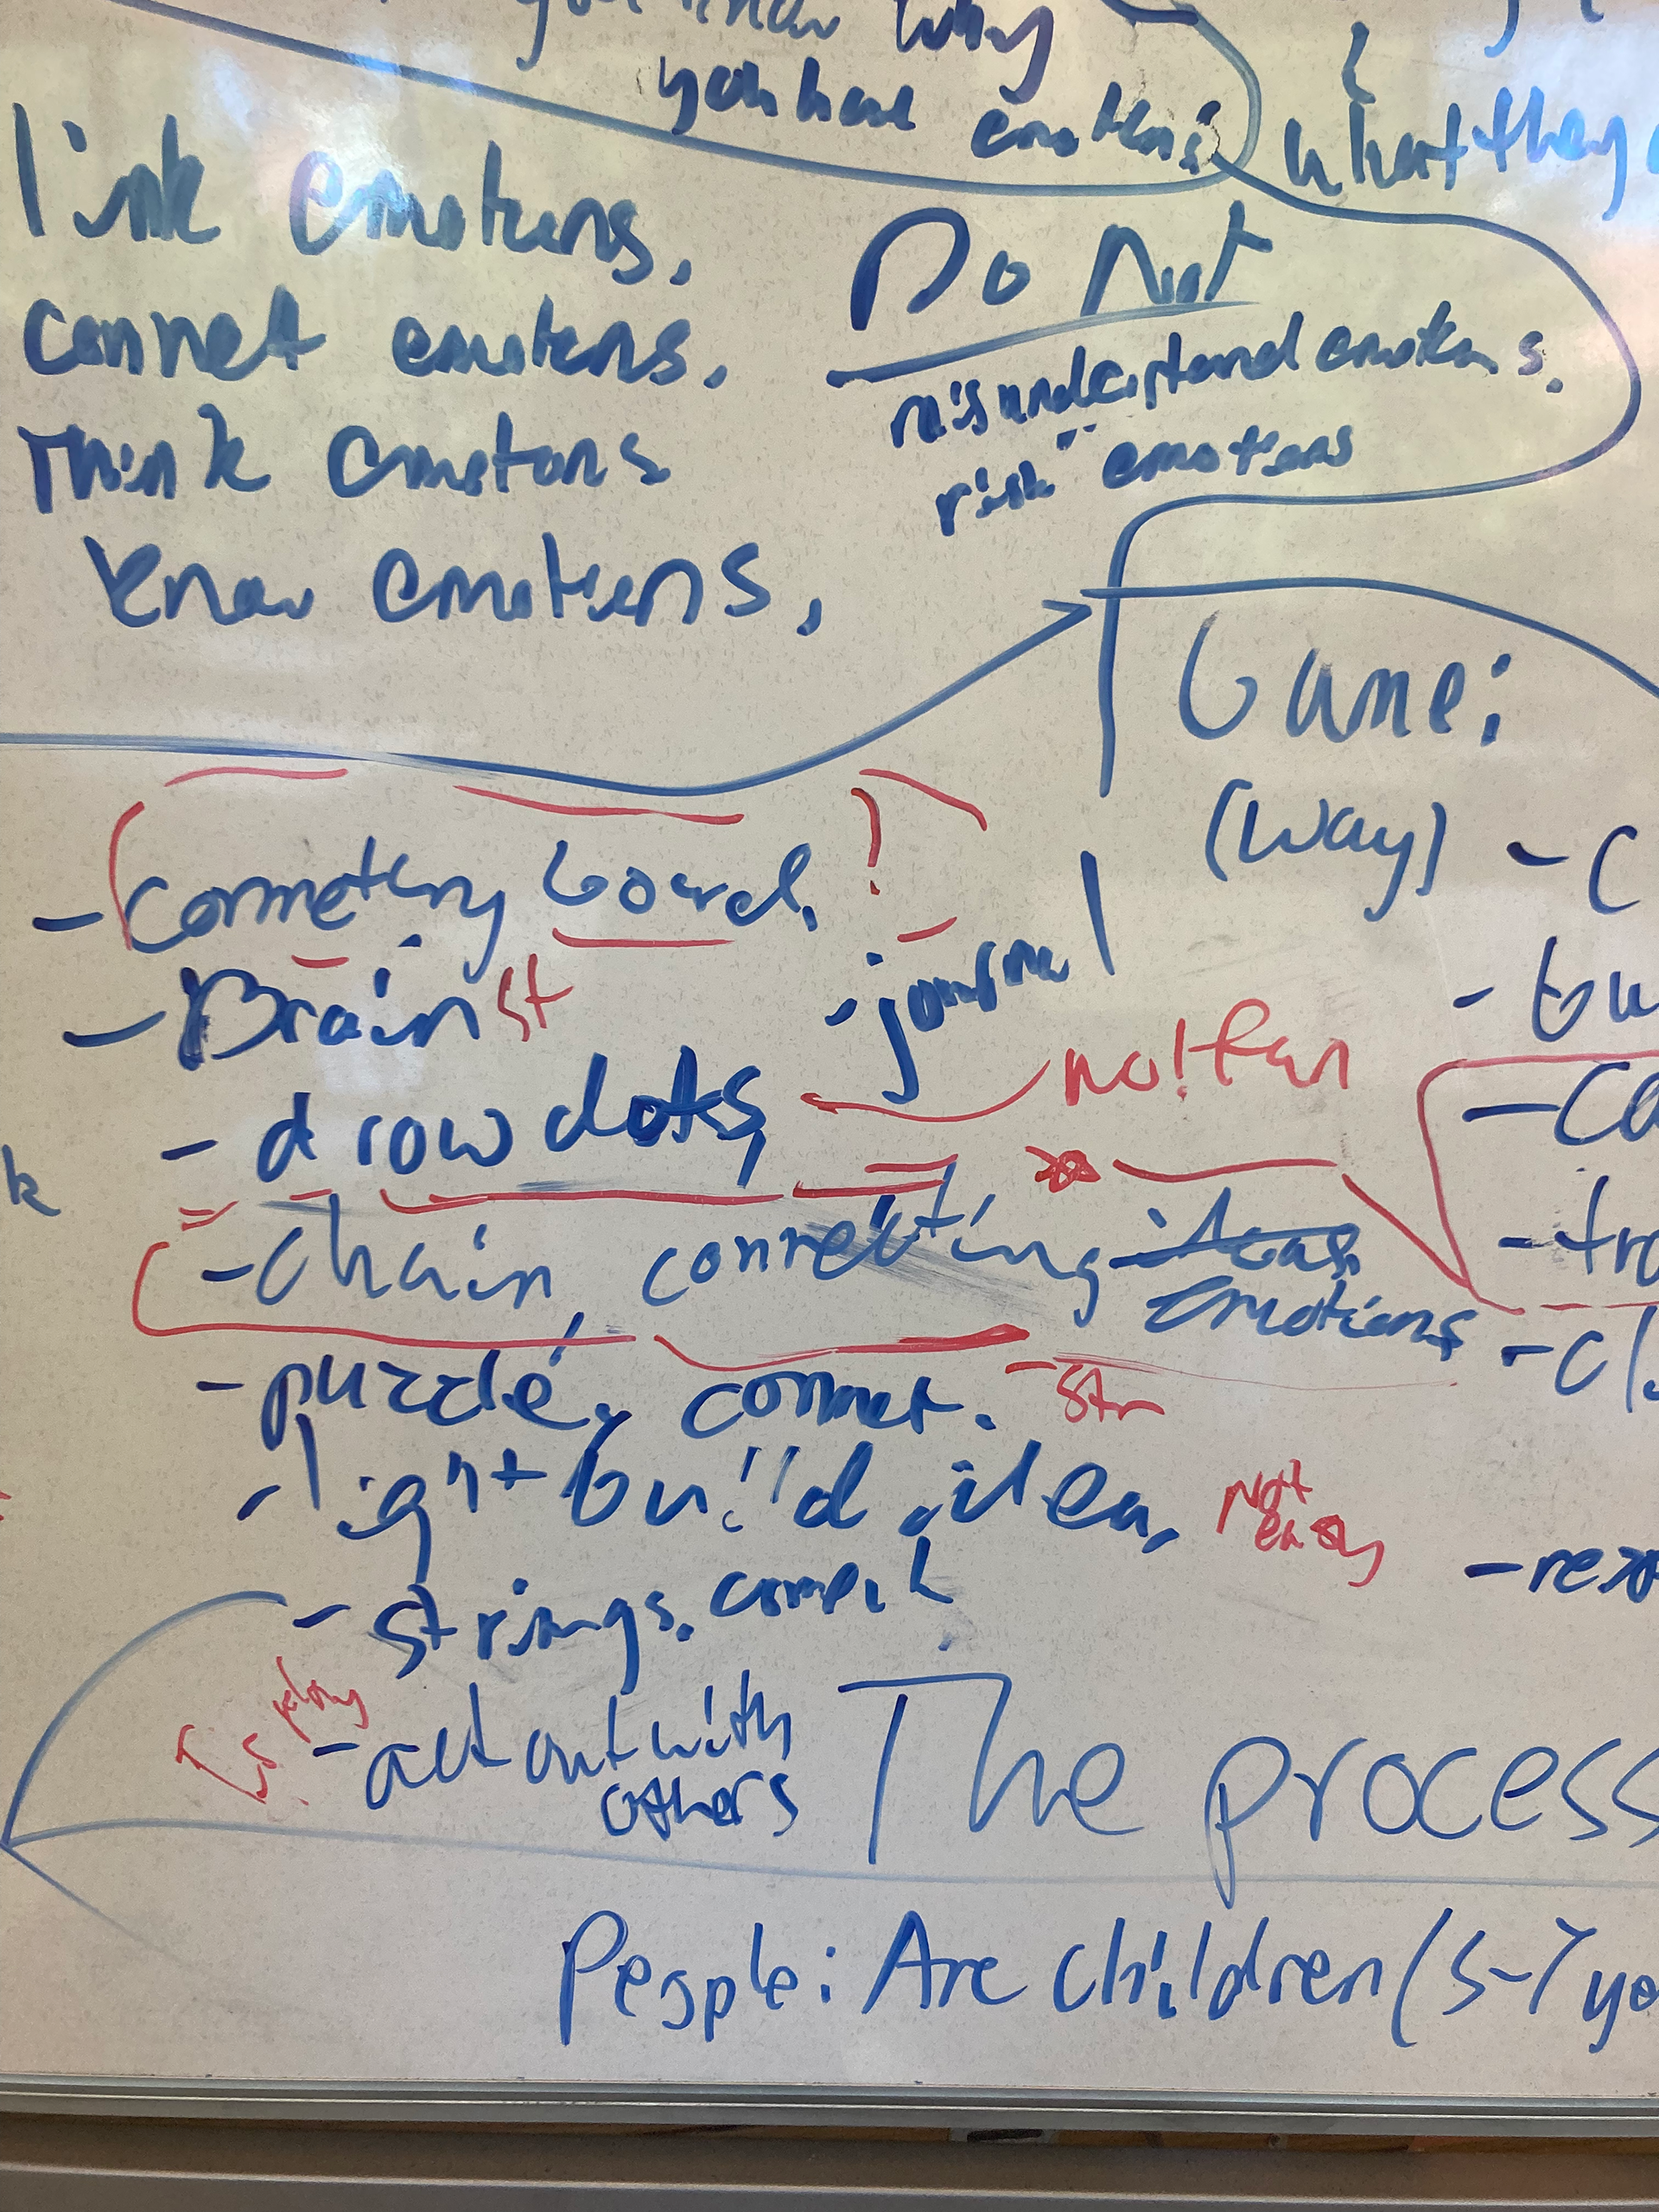 know why
you have emotions
what they
link emotions.
connet emotions.
Think emotions
know emotions.
Do Not
misunderstand emotions.
risk emotions
Game:
(way)
- connecting board.
- Brain st
- journal
- drow dots,
no! fun
- chain, connecting ideas
emotions
- puzzle, connet.
str
- light build idea,
Not
easy
- strings.
- act out with
others
The process
People: Are children (5-7 yo